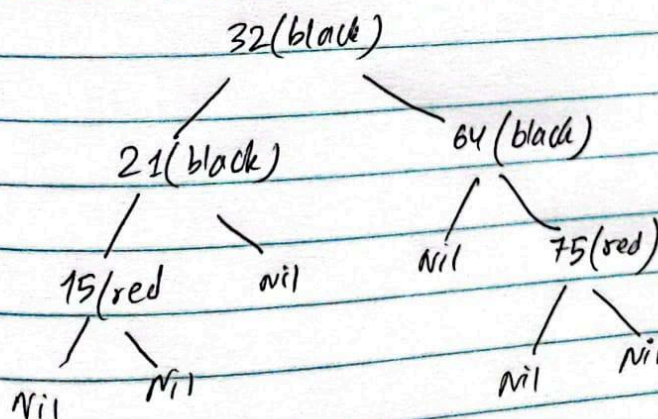 32(black)
21(black) 64(black)
15(red Nil Nil 75(red)
Nil Nil Nil Nil